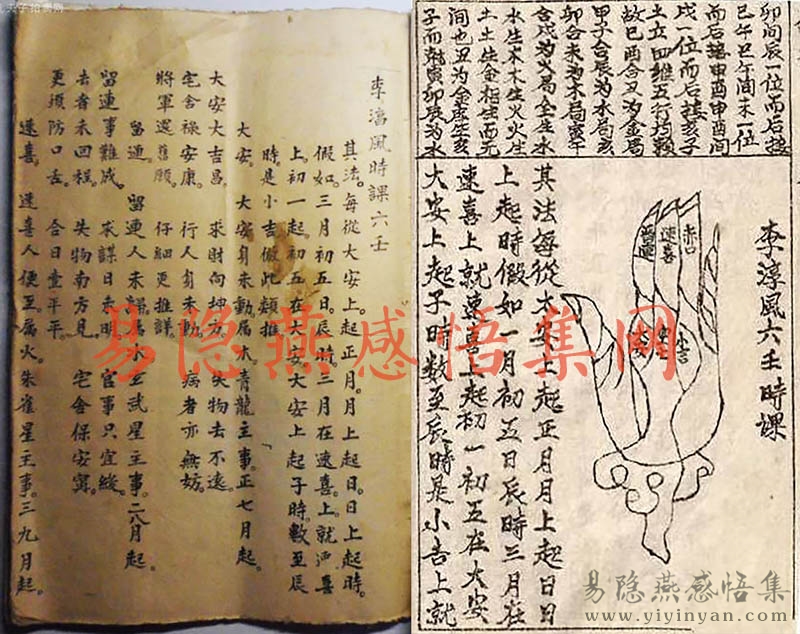 李淳風時課六壬
其法。每從大安上。起正月。月上起日。日上起時。
假如。三月初五日。辰時。三月在速喜。上就速喜
上初一起。初五在大安。大安上起子時。數至辰
時。是小吉。倣此類推。
大安。 大安身未動。屬木。青龍主事。正七月起。
大安大吉昌。 求財向坤方。失物去不遠。
宅舍祿安康。 行人身未動。病者亦無妨。
將軍還舊願。 仔細更推詳。
留連。 留連人未歸。屬水。玄武星主事。二八月起。
留連事難成。 求謀日未明。官事只宜緩。
去者未回程。 失物南方見。宅舍保安寧。
更須防口舌。 合日壹平平。
速喜。 速喜人便至。屬火。朱雀星主事。三九月起。
卯间辰一位而后接
巳午巳午间未一位
而后接申酉申酉間
戌一位而后接亥子
土立四维五行均賴
故巳酉合丑为金局
甲子合辰为水局亥
卯合未为木局寅午
合戌为火局金生水
水生木木生火火生
土土生金相生而无
间也丑为金库生亥
子而乾寅卯辰为水
李淳風六壬時課
赤口
速喜
留連
小吉
其法每從大安上起正月月上起日日
上起時假如一月初五日辰時三月在
速喜上就速喜上起初一初五在大安
大安上起子時数至辰時是小吉上就
易隐燕感悟集网
易隐燕感悟集
www.yiyinyan.com